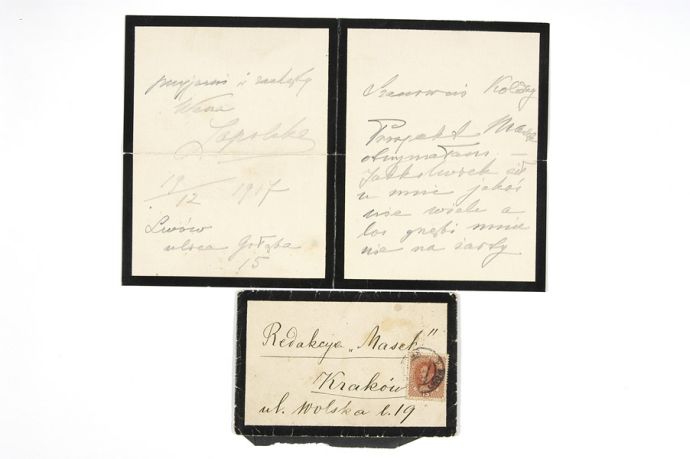 przyjaźń i zachęty
Wasza
Zapolska
19/12 1917
Lwów
ulica Gołąba
15
Szanowni Koledzy
Projekt Masek
otrzymałam. —
Jakkolwiek sił
u mnie jakoś
nie wiele a
los gnębi mnie
nie na żarty
Redakcya „Masek”
Kraków
ul. Wolska l. 19
15